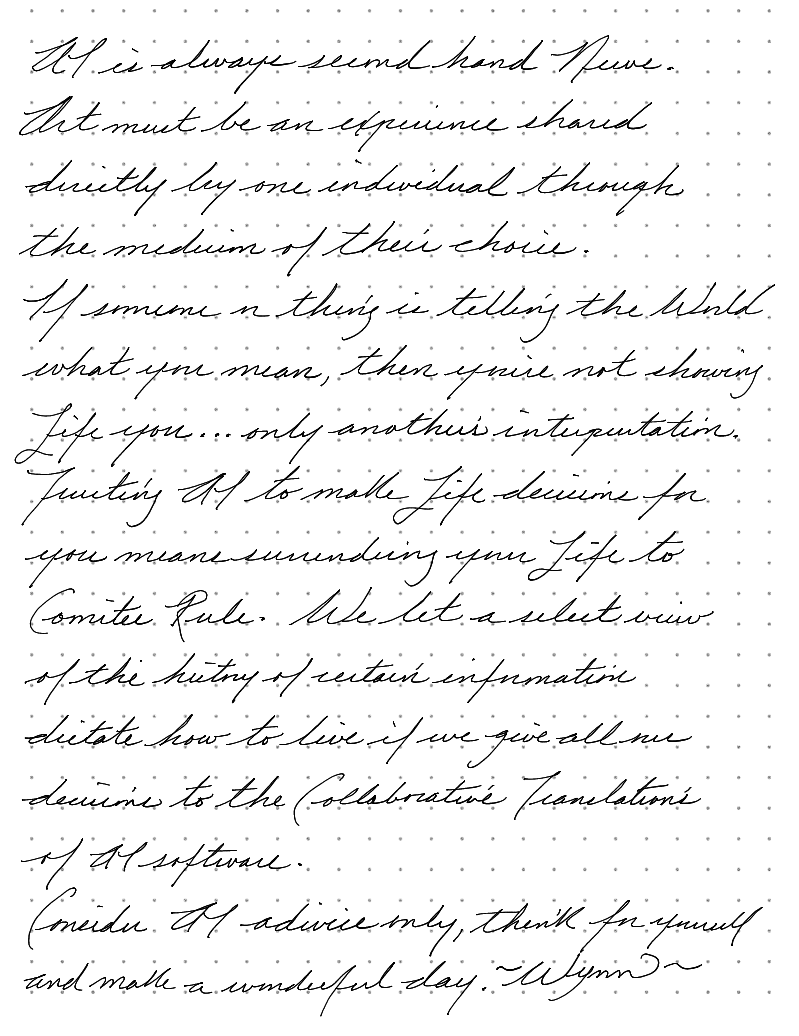 AI is always second hand News.
Art must be an experience shared
directly by one individual through
the medium of their choice.
If someone or thing is telling the World
what you mean, then you're not showing
Life you... only another's interpretation.
Trusting AI to make Life decisions for
you means surrendering your Life to
Comitee Rule. We let a select view
of the history of certain information
dictate how to live if we give all our
decisions to the Collaborative Translations
of AI software.
Consider AI advice only, think for yourself
and make a wonderful day. ~Wynn~